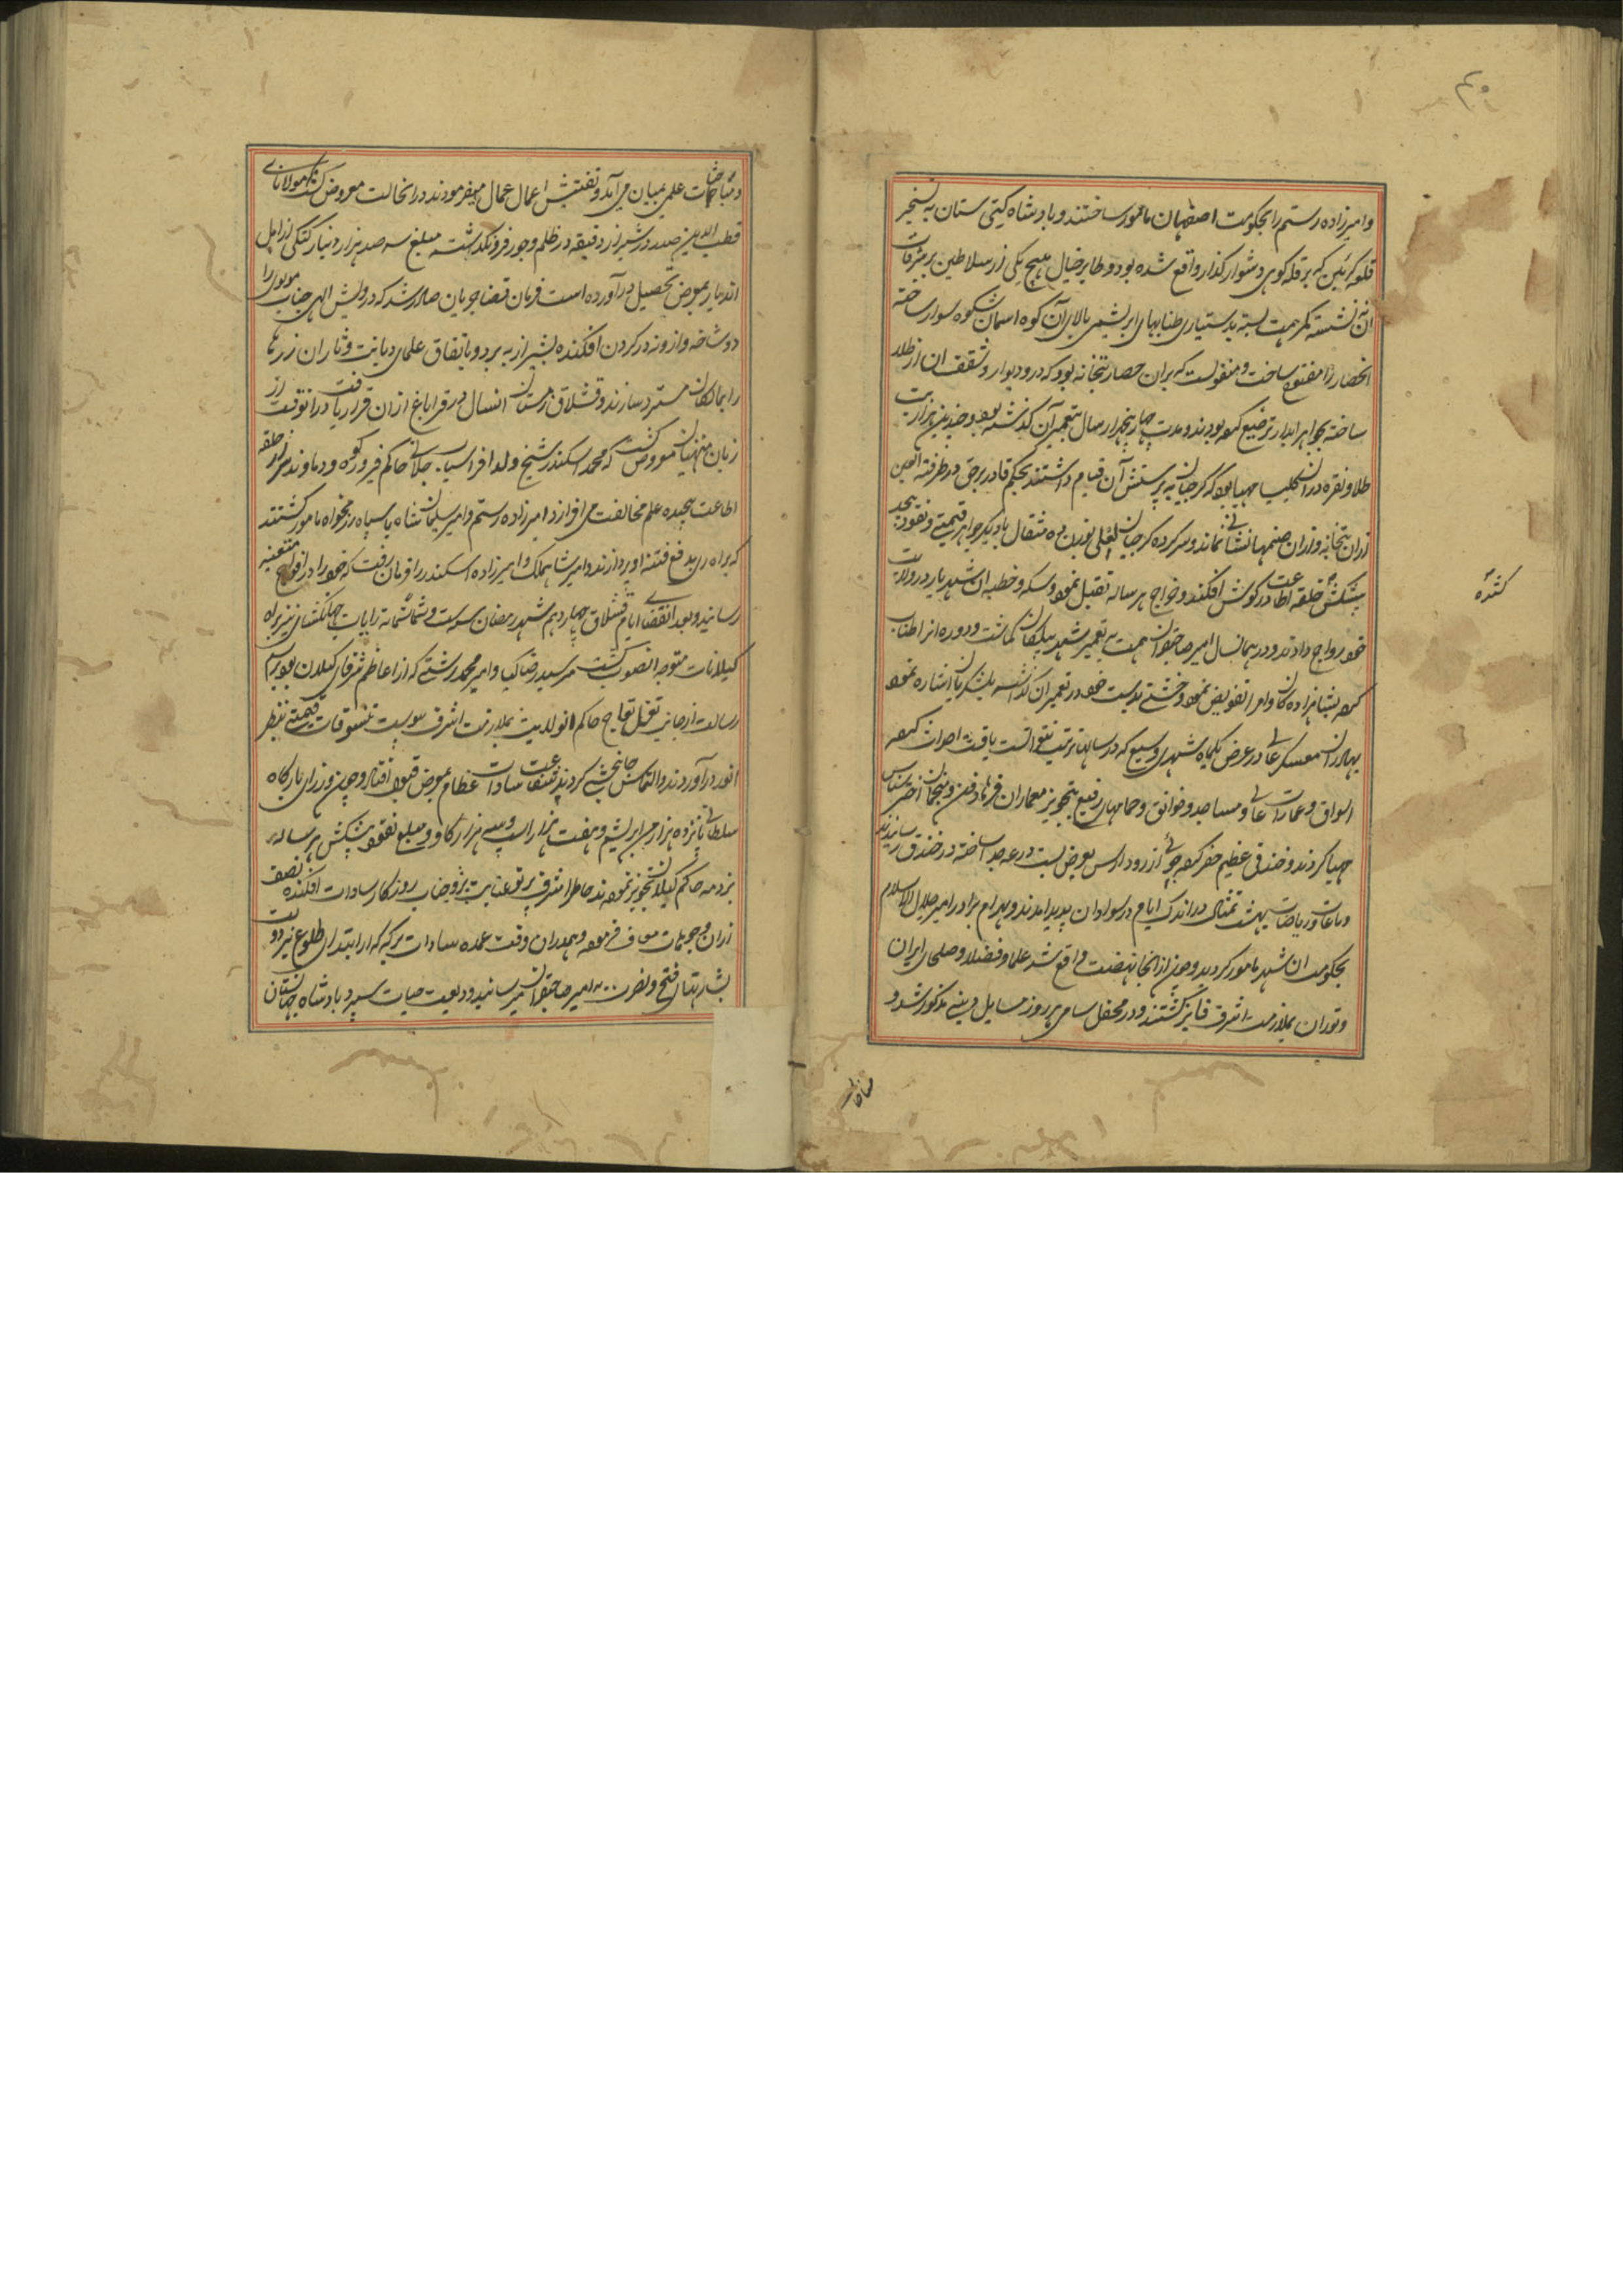 وامیرزاده رستم را بحکومت اصفهان مامور ساختند و بادشاه کیتی ستان به تسخیر
قلعه کرتین که بر قله کوهی دشوار کذار واقع شده بود و طایر خیال هیچ یکی از سلاطین بر شرفات
آن نه نشسته کمر همت بسته بدستیاری طنابهای ابریشمی بالای آن کوه اسمان شکوه سوار ساخته
انحصار را مفتوح ساخت و منقولست که بران حصار بتخانه بود که در و دیوار و سقف ان از طلا
ساخته بجواهر ابدار ترصیع کرده بودند و مدت چهار پنجهزار سال بتعمیر آن کذشته بود و چندین هزار بت
طلا و نقره دران کلیسا مهیا بود که کرجیان به پرستش آن قیام داشتند بحکم قادر برحق در طرفة العین
ازان بتخانه و ازان صنمها نشانی نماند و سرکرده کرجیان لعلی بوزن ده مثقال با دیکر جواهر قیمتی و نقود بیحد
پیشکش حلقه اطاعت در کوش افکند و خراج هر ساله تقبل نمود و سکه و خطبه ان شهریار در ولایت
خود رواج دادند و در همانسال امیر صاحبقران همت به تعمیر شهر بیلقان کماشت و دوره انرا طناب
کرده بشاهزاده کان و امرا تفویض نمود و خشتی بدست خود در تعمیر ان کذاشته بلشکریان اشاره نمود
بهادران معسکر عالی در عرض یکماه شهری وسیع که در سالها ترتیب نتوانست یافت احداث کرده
اسواق و عمارات عالی و مساجد و خوانق و حمامهای رفیع بتجویز معماران فرهاد فن و منجمان اختر شناس
مهیا کردند و خندقی عظیم حفر کرده جوئی از رود ارس بعرض بست درعه جدا ساخته در خندق رسانیدند
و باغات و ریاضات بهشت تمثال در اندک ایام در سوادان پدید امدند و بهرام برادر امیر جلال الاسلام
بحکومت ان شهر مامور کردید و چون از انجا نهضت واقع شد علما و فضلا و صلحای ایران
و توران بملازمت اشرف فایز کشتند و در محفل سامی هر روز مسایل دینی مذکور شد و
کنده
مباحثات
و مباحثات علمی بمیان می آمد و تفتیش اعمال عمال میفرمودند در انحالت معروض کشت که مولانای
قطب الدین صدر در شیراز دقیقه در ظلم و جور فرونکذاشته مبلغ سه صد هزار دینار کنکی از اهل
اندیار بمعرض تحصیل در آورده است فرمان قضا جریان صادر شد که درویش الهی جناب مولوی را
دوشاخه و ازونه در کردن افکنده بشیراز به برد و باتفاق علمای دیانت وثاران زرها
را بمالکان مسترد سازند و قشلاق زمستان انسال در قراباغ ازان قرار یافت درانوقت از
زبان منهیان معروض کشت که محمد اسکندر شیخ ولد افراسیاب چلابی حاکم فیروزکوه و دماوند سر از حلقه
اطاعت پیچیده علم مخالفت می افرازد امیرزاده رستم و امیر سلیمان شاه با سپاه رزمخواه مامور کشتند
که براه ری بدفع فتنه او پردازند و امیر شاهملک و امیرزاده اسکندر را فرمان رفت که خود را در افواج متعینه
رسانید و بعد انقضای ایام قشلاق چهاردهم شهر رمضان سنه ست و ثمانمایه رایات جهانکشای نیز براه
کیلانات متوجه انصوب کشت سید رضا کیا و امیر محمد رشتی که از اعاظم شرفای کیلان بود برسم
رسالت از جانب حاکم انولایت بملازمت اشرف پیوست تنسوقات قیمتی بنظر
انور در آوردند و التماس جانبخشی کردند شفاعت سادات عظام بعرض قبول افتاد و چون وزرای بارکاه
سلطانی پانزده هزار من ابریشم و هفت هزار اسپ و سه هزار کاو و مبلغ نقود پیشکش هر ساله
بزدمه حاکم کیلان تجویز نموده بودند خاطر اشرف پرتو عنایت بر وجنات روزکار سادات افکنده نصف
ازان وجوهات معاف فرموده و همدران وقت عمده سادات برکه که از ابتدای طلوع نیر دولت
بشارتهای فتح و نصرت به امیر صاحبقران میرسانید ودیعت حیات سپرد بادشاه جهانستان